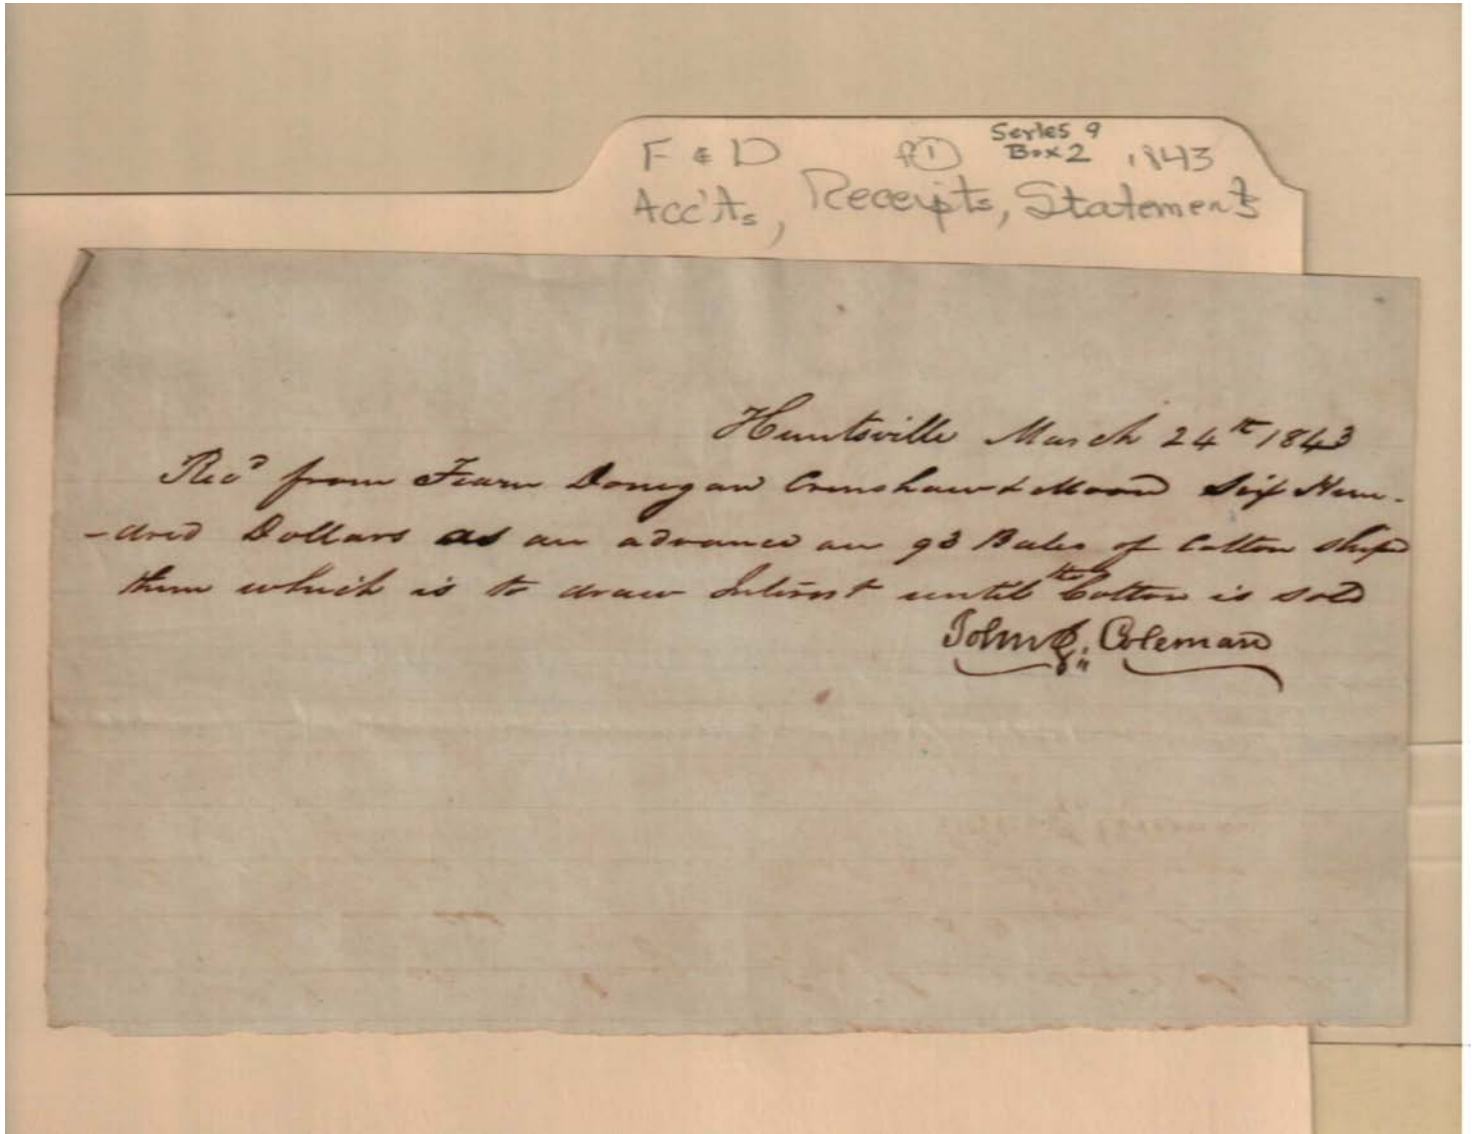 F & D f① Series 9
Box 2 1843
Acc'ts, Receipts, Statements
Huntsville March 24th 1843
Recd from Fearn Donegan Crenshaw & Moore Six Hun-
-dred Dollars as an advance on 93 Bales of Cotton ship
them which is to draw Interest until the Cotton is sold
John Coleman